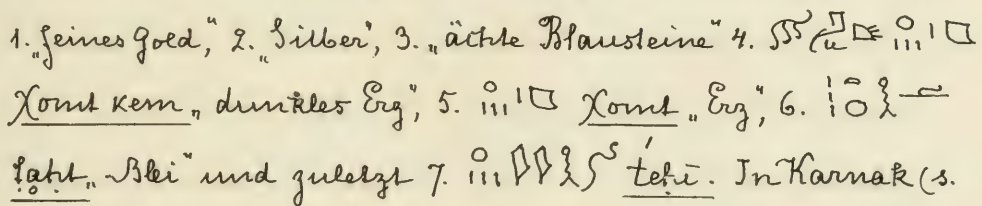 1. „feines Gold“, 2. „Silber“, 3. „ächte Blausteine“ 4.
Xomt kem „dunkles Erz“, 5. Xomt „Erz“, 6.
taht „Blei“ und zuletzt 7. tehi. In Karnak (s.